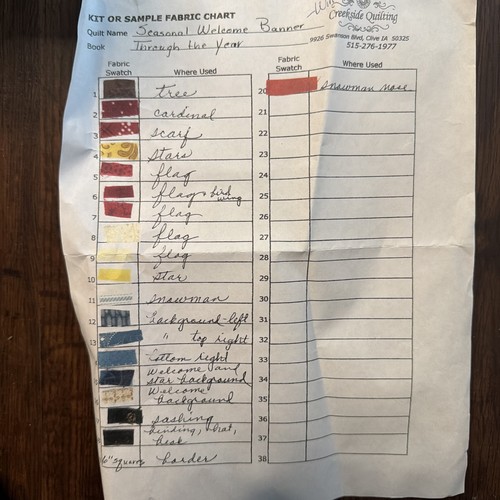 KIT OR SAMPLE FABRIC CHART
Creekside Quilting
9926 Swanson Blvd, Clive IA 50325
515-276-1977
Quilt Name Seasonal Welcome Banner
Book Through the Year
Fabric Swatch Where Used
1 tree
2 cardinal
3 scarf
4 stars
5 flag
6 flag & bird wing
7 flag
8 flag
9 flag
10 star
11 snowman
12 background-left
13 " top right
bottom right
Welcome and
star background
Welcome
background
sashing
binding, hat,
beak
6" squares border
Fabric Swatch Where Used
20 snowman nose
21
22
23
24
25
26
27
28
29
30
31
32
33
34
35
36
37
38